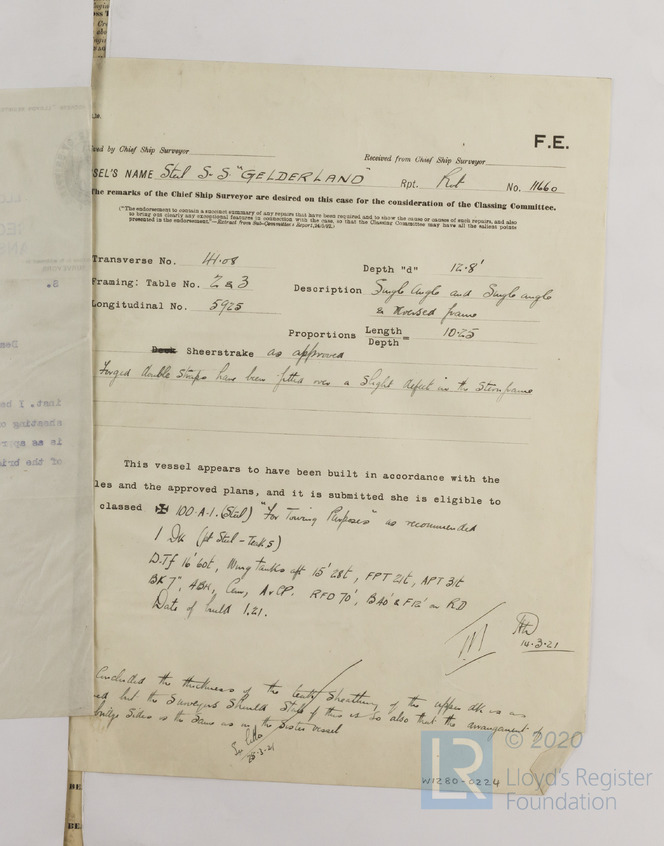 F.E.
ived by Chief Ship Surveyor
Received from Chief Ship Surveyor
SSEL'S NAME Steel S.S "GELDERLAND" Rpt. Rot No. 11660
The remarks of the Chief Ship Surveyor are desired on this case for the consideration of the Classing Committee.
("The endorsement to contain a succinct summary of any repairs that have been required and to show the cause or causes of such repairs, and also
to bring out clearly any exceptional features in connection with the case, so that the Classing Committee may have all the salient points
presented in the endorsement."—Extract from Sub-Committee's Report,
Transverse No. 41.08
Depth "d" 12.8'
Framing: Table No. 2 & 3
Description Single angle and Single angle
& reversed frame
Longitudinal No. 5925
Proportions Length/Depth = 10.25
Deck Sheerstrake as approved
Forged double straps have been fitted over a slight defect in the Sternframe
This vessel appears to have been built in accordance with the
les and the approved plans, and it is submitted she is eligible to
classed ✠ 100.A.1. (Steel) "For Towing Purposes" as recommended
1 Dk (pt Steel - Teak S)
D.Tf 16' 60t, Wing tanks aft 15' 28t, FPT 21t, APT 31t
BK 7", 4BH, Cem, A&CP. RFD 70', B40' & F12' on RD
Date of build 1.21.
14.3.21
Concluded the thickness of the teak sheathing of the upper dk is as
ed but the Surveyors should state if this is so also that the arrangement of
bridge sides is the same as in the Sister vessel
W1280-0224
LR © 2020
Lloyd's Register
Foundation